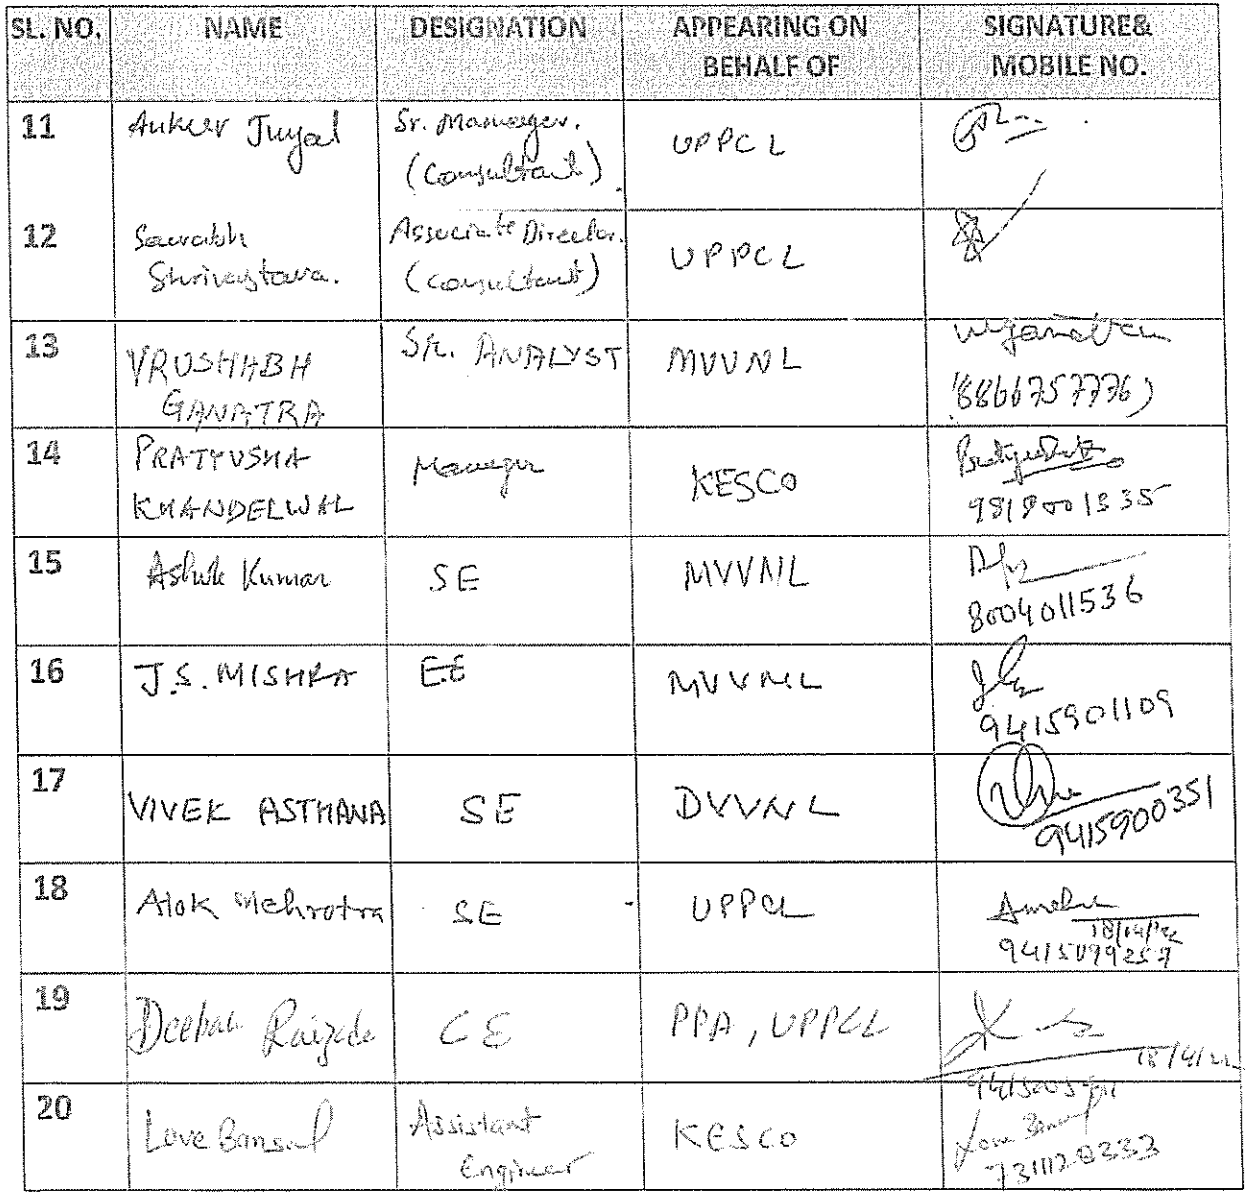 SL. NO. NAME DESIGNATION APPEARING ON BEHALF OF SIGNATURE& MOBILE NO.
11 Ankur Juyal Sr. Manager. (Consultant). UPPCL
12 Saurabh Shrivastava. Associate Director. (Consultant) UPPCL
13 VRUSHABH GANATRA SR. ANALYST MVVNL (8866757776)
14 PRATYUSHA KHANDELWAL Manager KESCO
15 Ashok Kumar SE MVVNL 8004011536
16 J.S. MISHRA EE MVVNL 9415901109
17 VIVEK ASTHANA SE DVVNL 9415900351
18 Alok Mehrotra SE UPPCL
19 Deepak Raizada CE PPA, UPPCL 18/4/22
20 Love Bansal Assistant Engineer KESCO Love Bansal